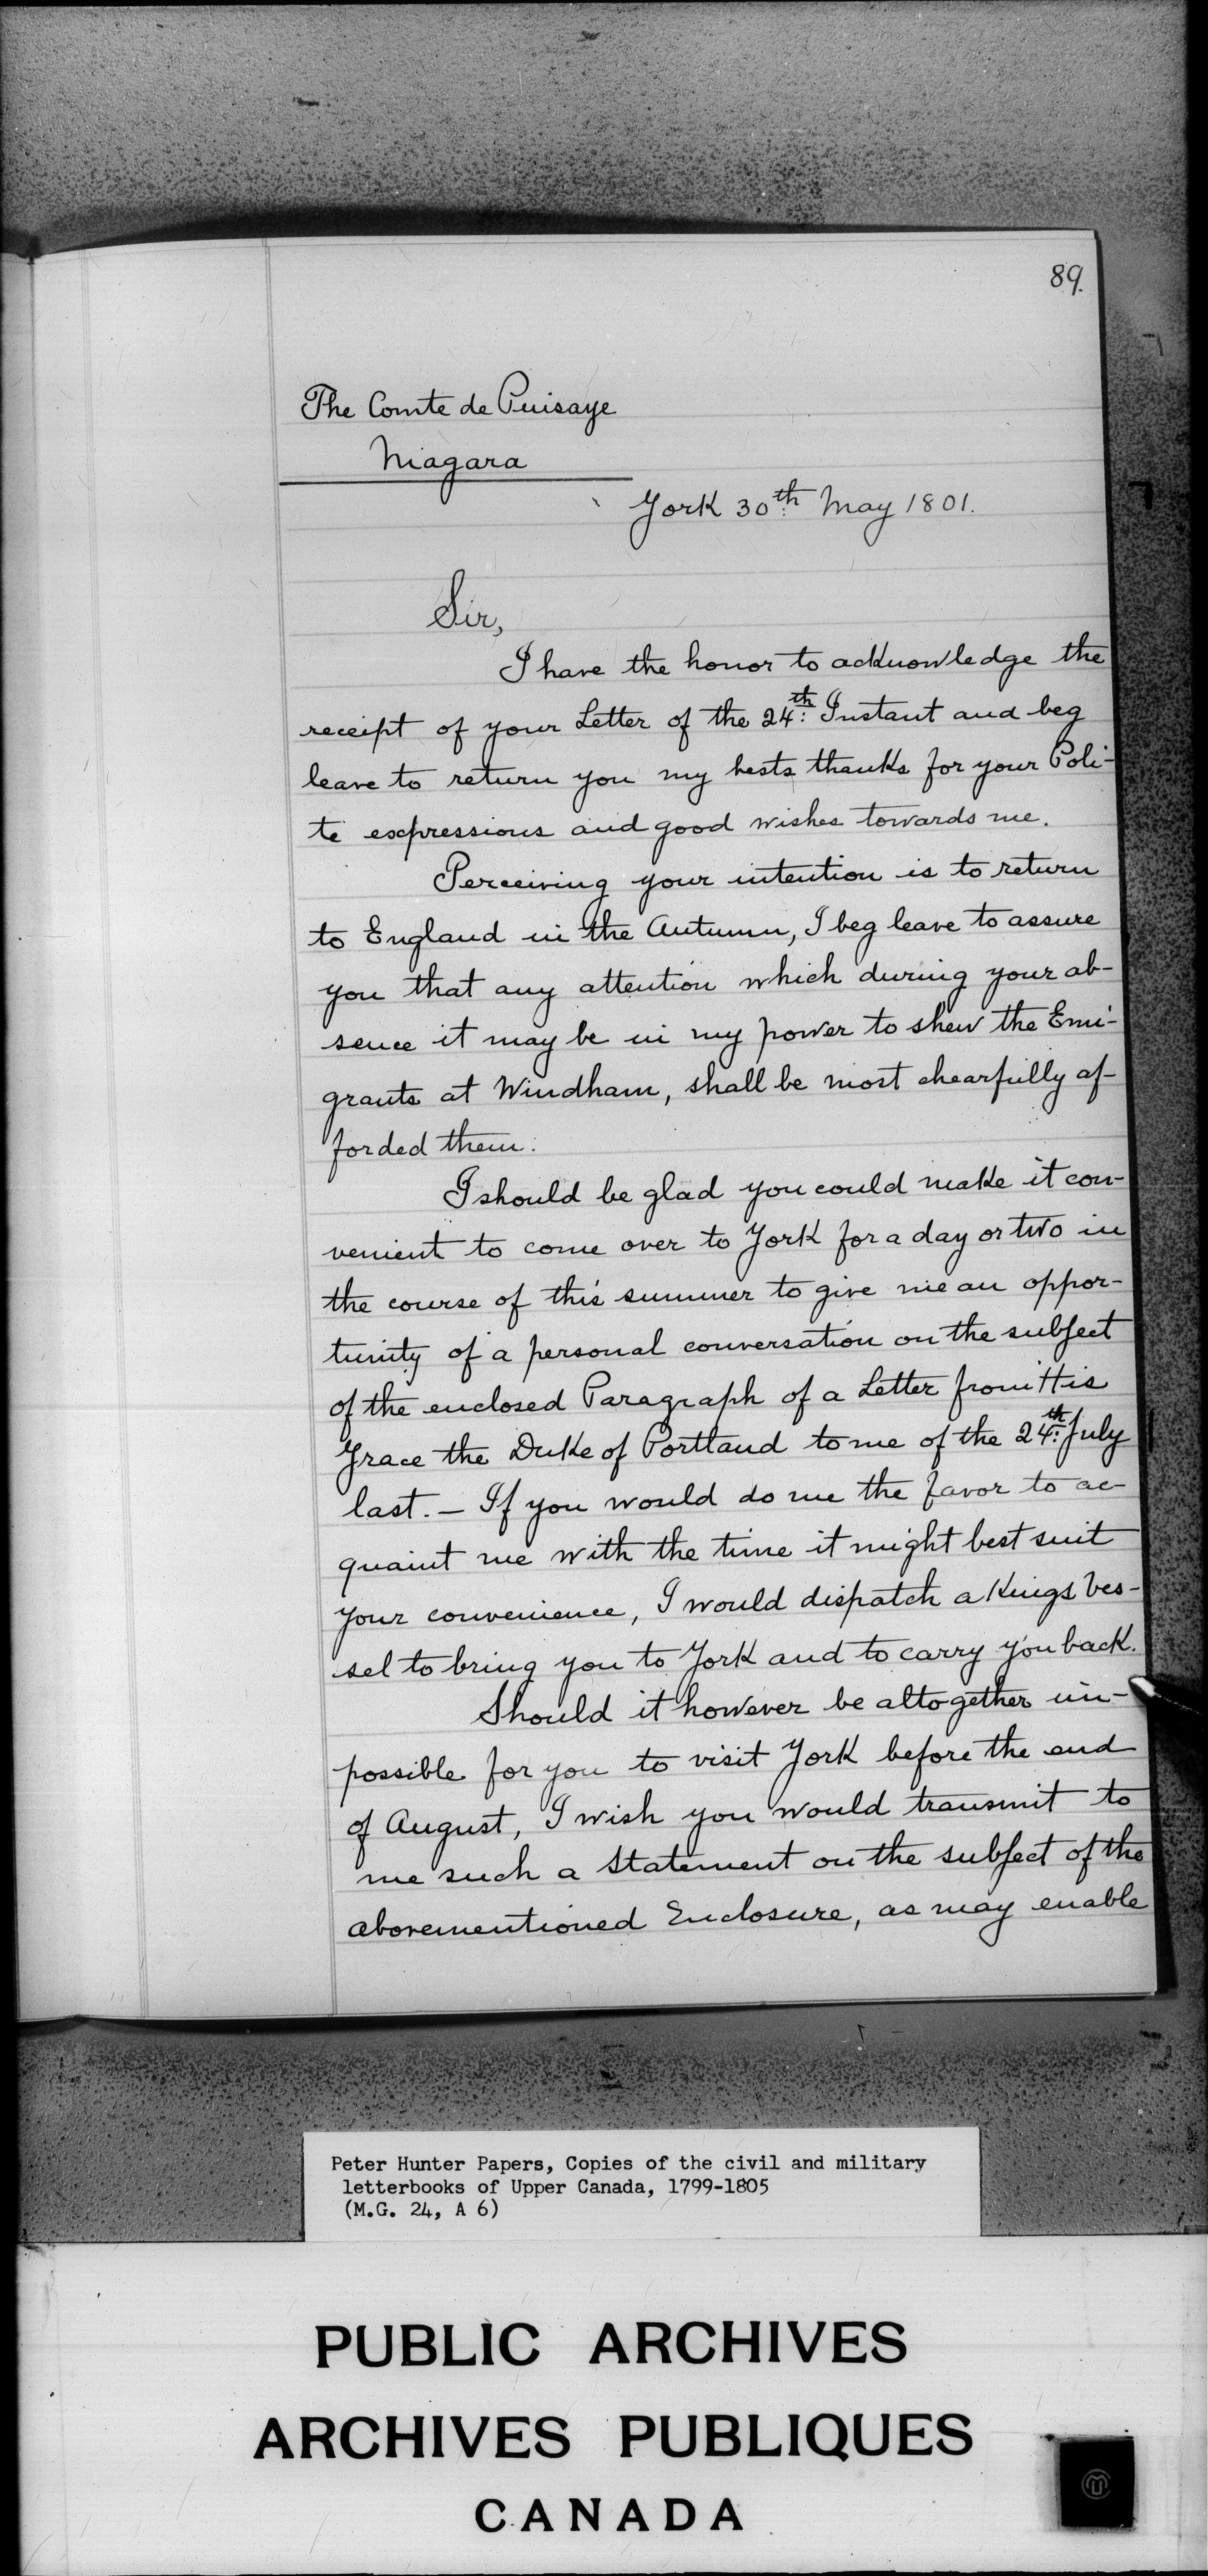 89.
The Comte de Puisaye
Niagara
York 30th May 1801.
Sir,
I have the honor to acknowledge the
receipt of your Letter of the 24th: Instant and beg
leave to return you my bests thanks for your Poli-
te expressions and good wishes towards me.
Perceiving your intention is to return
to England in the Autumn, I beg leave to assure
you that any attention which during your ab-
sence it may be in my power to shew the Emi-
grants at Windham, shall be most chearfully af-
forded them.
I should be glad you could make it con-
venient to come over to York for a day or two in
the course of this summer to give me an oppor-
tunity of a personal conversation on the subject
of the enclosed Paragraph of a Letter from His
Grace the Duke of Portland to me of the 24th: July
last. - If you would do me the favor to ac-
quaint me with the time it might best suit
your convenience, I would dispatch a Kings Ves-
sel to bring you to York and to carry you back.
Should it however be altogether im-
possible for you to visit York before the end
of August, I wish you would transmit to
me such a Statement on the subject of the
abovementioned Enclosure, as may enable
Peter Hunter Papers, Copies of the civil and military
letterbooks of Upper Canada, 1799-1805
(M.G. 24, A 6)
PUBLIC ARCHIVES
ARCHIVES PUBLIQUES
CANADA